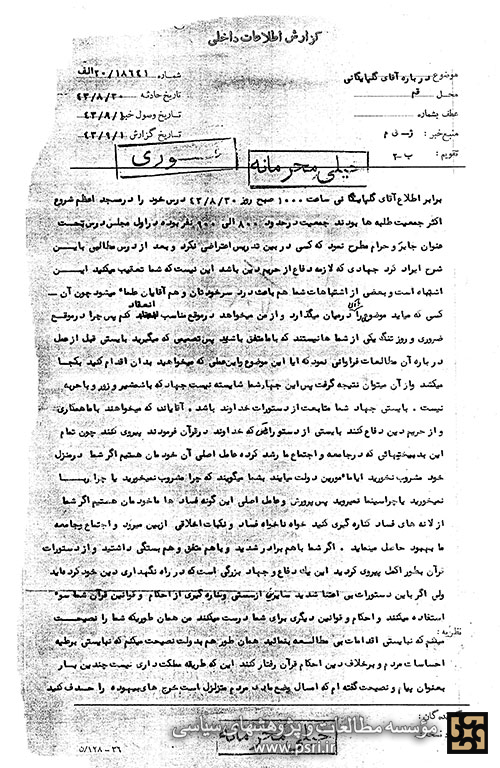 گزارش اطلاعات داخلی
موضوع درباره آقای گلپایگانی
محل قم
عطف بشماره
منبع خبر :
تقویم : ب-۲
شماره ۲۰/۱۸۶۴۱ الف
تاریخ حادثه ۴۳/۸/۳۰
تاریخ وصول خبر ۴۳/۹/۱
تاریخ گزارش ۴۳/۹/۱
فوری
خیلی محرمانه
برابر اطلاع آقای گلپایگانی ساعت ۱۰۰۰ صبح روز ۴۳/۸/۳۰ درس خود را در مسجد اعظم شروع
اکثر جمعیت طلبه ها بودند جمعیت در حدود ۸۰۰ الی ۹۰۰ نفر بوده در اول مجلس درس تحت
عنوان جابر و حرام مطرح نمود که کسی در بین تدریس اعتراضی نکرد و بعد از درس مطالبی باین
شرح ایراد کرد جهادی که لازمه دفاع از حریم دین باشد این نیست که شما تعقیب میکنید این
اشتباه است و بعضی از اشتباهات شما هم باعث درد سر خودتان و هم آقایان علماء میشود چون آن
کسی که میاید موضوعی را در میان میگذارد و از من میخواهد در موقع مناسب انتقاد کنم پس چرا در موقع
ضروری و روز تنگ یکی از شما ها نیستند که با ما متفق باشند پس تصمیمی که میگیرید بایستی قبل از عمل
در باره آن مطالعات فراوانی نمود که آیا این موضوع و این عملی که میخواهید بدان اقدام کنید بکجا
میکشد و از آن میتوان نتیجه گرفت پس این جهاد شما شایسته نیست جهاد که با شمشیر و زور و با حربه
نیست . بایستی جهاد شما متابعت از دستورات خداوند باشد . آقایانی که میخواهند با ما همکاری
و از حریم دین دفاع کنند بایستی از دستوراتی که خداوند در قرآن فرمودند پیروی کنند چون تمام
این بدبختیهائی که در جامعه و اجتماع ما رشد کرده عامل اصلی آن خود مان هستیم اگر شما در منزل
خود مشروب نخورید آیا مأمورین دولت میایند بشما میگویند که چرا مشروب نمیخورید یا چرا ربا
نمیخورید یا چرا سینما نمیروید پس پرورش و عامل اصلی این گونه فساد ها ما خودمان هستیم اگر شما
از لانه های فساد کناره گیری کنید خواه ناخواه فساد و نکبات اخلاقی از بین میرود و اجتماع و جامعه
ما بهبود حاصل مینماید . اگر شما با هم برادر شدید و با هم متفق و هم بستگی داشتید و از دستورات
قرآن بطور اکمل پیروی کردید این یک دفاع و جهاد بزرگی است که در راه نگهداری دین خود کرده اید
ولی اگر باین دستورات بی اعتنا شدید سایرین از سستی و کناره گیری از احکام و قوانین قرآن شما سوء
استفاده میکنند و احکام و قوانین دیگری برای شما درست میکنند من همان طوریکه شما را نصیحت
میکنم که نبایستی اقدامات بی مطالعه بنمائید همان طور هم بدولت نصیحت میکنم که نبایستی بر علیه
احساسات مردم و بر خلاف دین احکام قرآن رفتار کنند این که طریقه مملکت داری نیست چندین بار
بعنوان پیام و نصیحت گفته ام که امسال وضع باید مردم متزلزل است خرج های بیهوده را حذف کنید
نظریه :
گیرندگان :
خیلی محرمانه
مؤسسه مطالعات و پژوهشهای سیاسی
www.psri.ir
۵/۱۲۸-۳۶